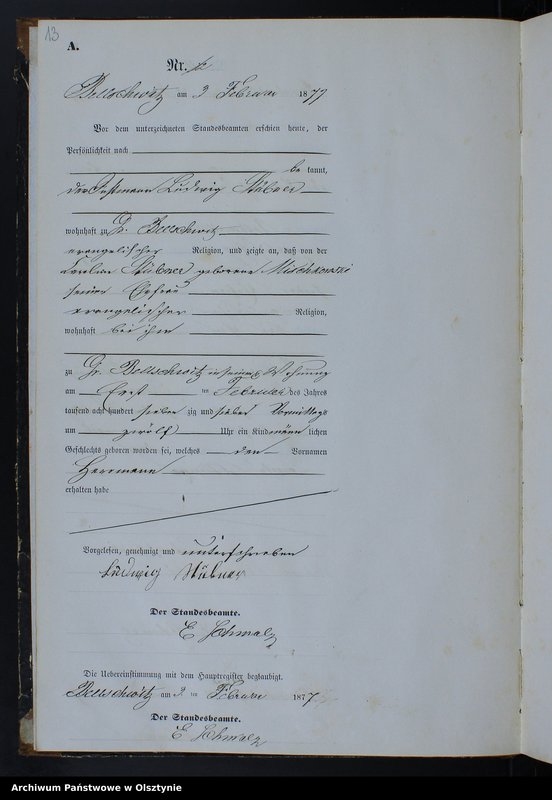 13
A.
Nr.
Bellschwitz am 3 Februar 1877
Vor dem unterzeichneten Standesbeamten erschien heute, der
Persönlichkeit nach
be kannt,
der Instmann Ludwig Stübner
wohnhaft zu Gr. Bellschwitz
evangelischer Religion, und zeigte an, daß von der
Stübner geborene Mischkowski
seiner Ehefrau
evangelischer Religion,
wohnhaft bei ihm
zu Gr. Bellschwitz in seiner Wohnung
am Erst ten Februar des Jahres
tausend acht hundert sieben zig und sieben Vormittags
um zwölf Uhr ein Kind männ lichen
Geschlechts geboren worden sei, welches den Vornamen
Herrmann
erhalten habe
Vorgelesen, genehmigt und unterschrieben
Ludwig Stübner
Der Standesbeamte.
E Schmalz
Die Uebereinstimmung mit dem Hauptregister beglaubigt.
Bellschwitz am 3 ten Februar 1877
Der Standesbeamte.
E Schmalz
Archiwum Państwowe w Olsztynie